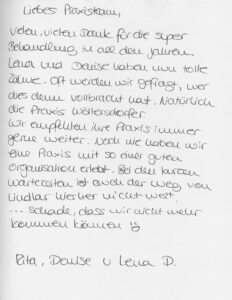 Liebes Praxisteam,
vielen, vielen Dank für die super
Behandlung in all den Jahren.
Lena und Denise haben nun tolle
Zähne. Oft werden wir gefragt, wer
dies denn vollbracht hat. Natürlich
die Praxis Woltersdorfer
Wir empfehlen ihre Praxis immer
gerne weiter. Noch nie haben wir
eine Praxis mit so einer guten
Organisation erlebt. Bei den kurzen
Wartezeiten ist auch der Weg, von
Lindlar hierher nicht weit.
... schade, dass wir nicht mehr
kommen können ☹
Rita, Denise u Lena D.